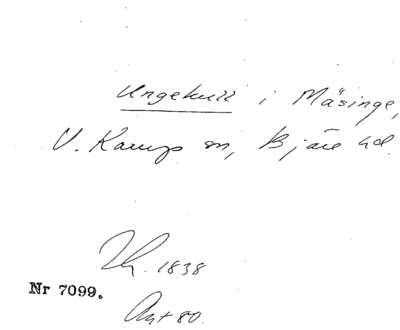 Ungekull i Mäsinge,
V. Karup sn, Bjäre hd.
Th. 1838
Nr 7099.
Ant 80.